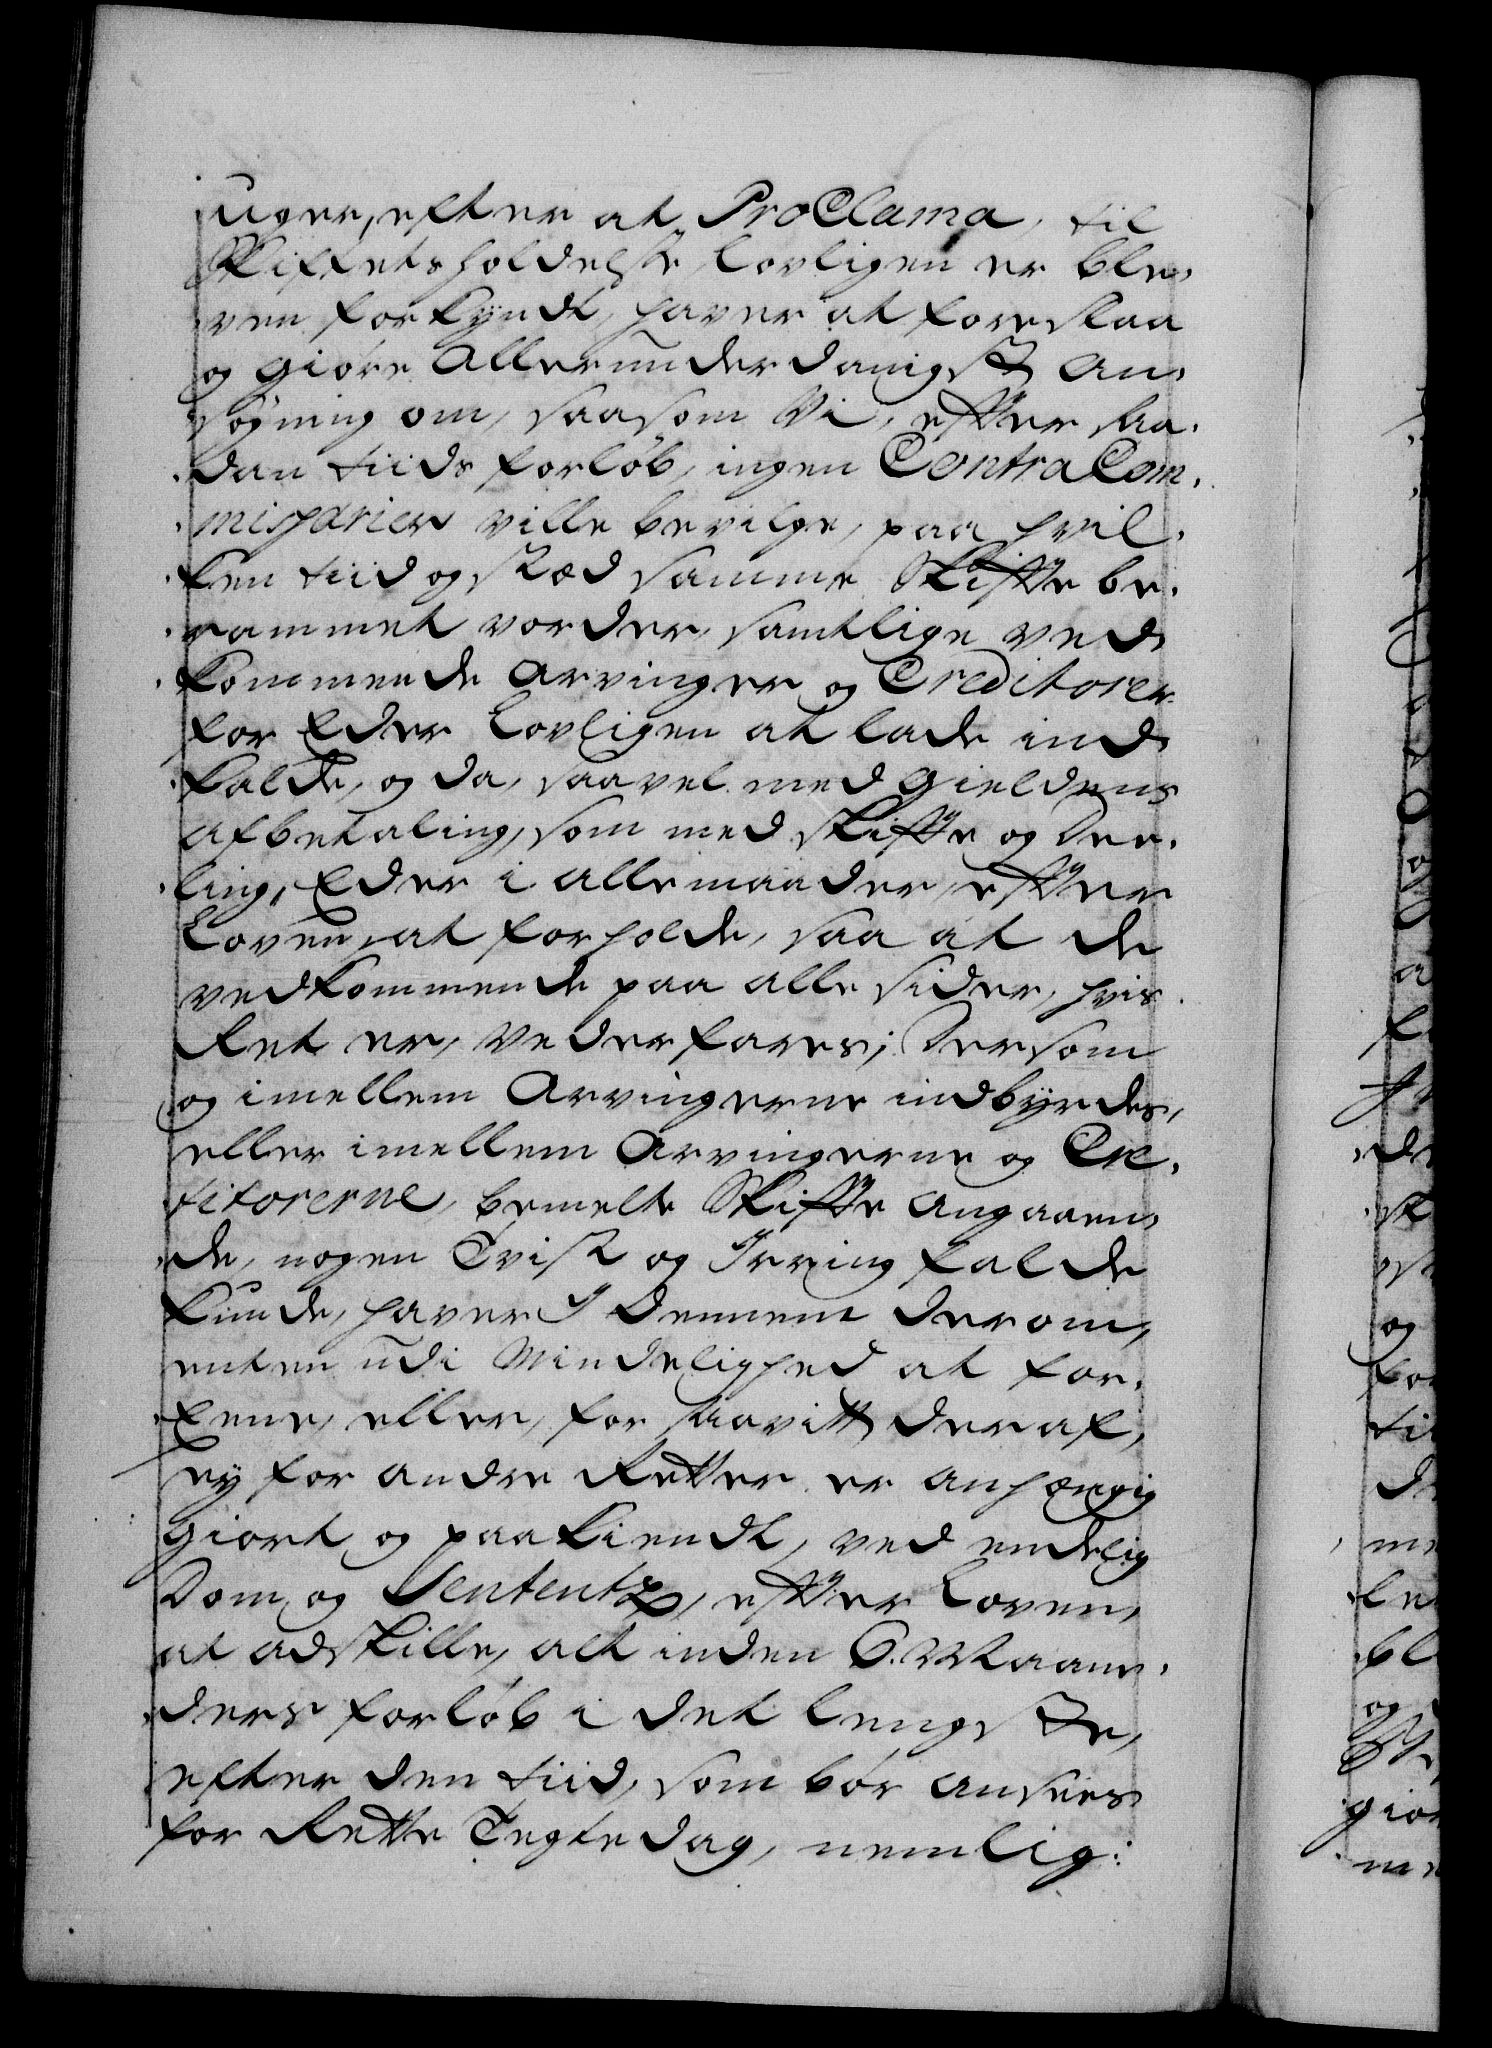 uger, efter at ProClama, til
Skiftets holdelse, lovligen er ble,
ven forkyndt, haver at foreslaa
og giøre Allerunderdanigst an,
søgning om, saasom Vi, efter saa,
dan tiids forløb, ingen Contra Com,
missarier ville bevilge, paa hvil,
ken tiid og stæd samme Skifte be,
rammet vorder, samtlige ved,
kommende Arvinger og Creditorer
for Eder lovligen at lade ind,
kalde, og da, saavel med gieldens
afbetaling, som med skifte og Dee,
ling, Eder i alle maader, efter
Loven, at forholde, saa at de
vedkommende paa alle sider, hvis
Ret er, vederfares; Dersom
og imellem Arvingerne indbyrdes,
eller imellem Arvingerne og Cre,
ditorerne, bemelte Skifte angaaen,
de, nogen Tvist og Irring falde
kunde, haver I dennem derom,
enten udi Mindelighed at for,
Eene, eller, for saavitt deraf,
ey for andre Retter er anhængig
giort og paakiendt, ved endelig
Dom og Sententz, efter Loven,
at adskille, alt inden 6. Maane,
ders forløb i det lengste,
efter den tiid, som bør ansees
for Rette Tegtedag, nemlig: